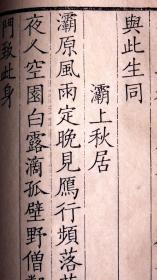 與此生同
灞上秋居
灞原風雨定晚見鴈行頻落葉
夜人空園白露滴孤壁野僧鄰
門致此身